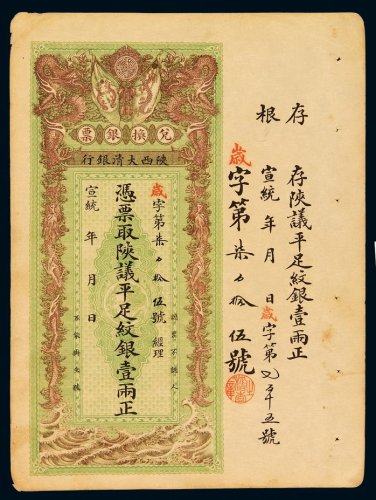 存根
存陝議平足紋銀壹兩正
宣統 年 月 日歲字第 五號
歲字第柒 拾伍號
票銀換兌
行銀清大西陝
歲字第柒 拾伍號 經理
憑票取陝議平足紋銀壹兩正
宣統 年 月 日
認票不認人